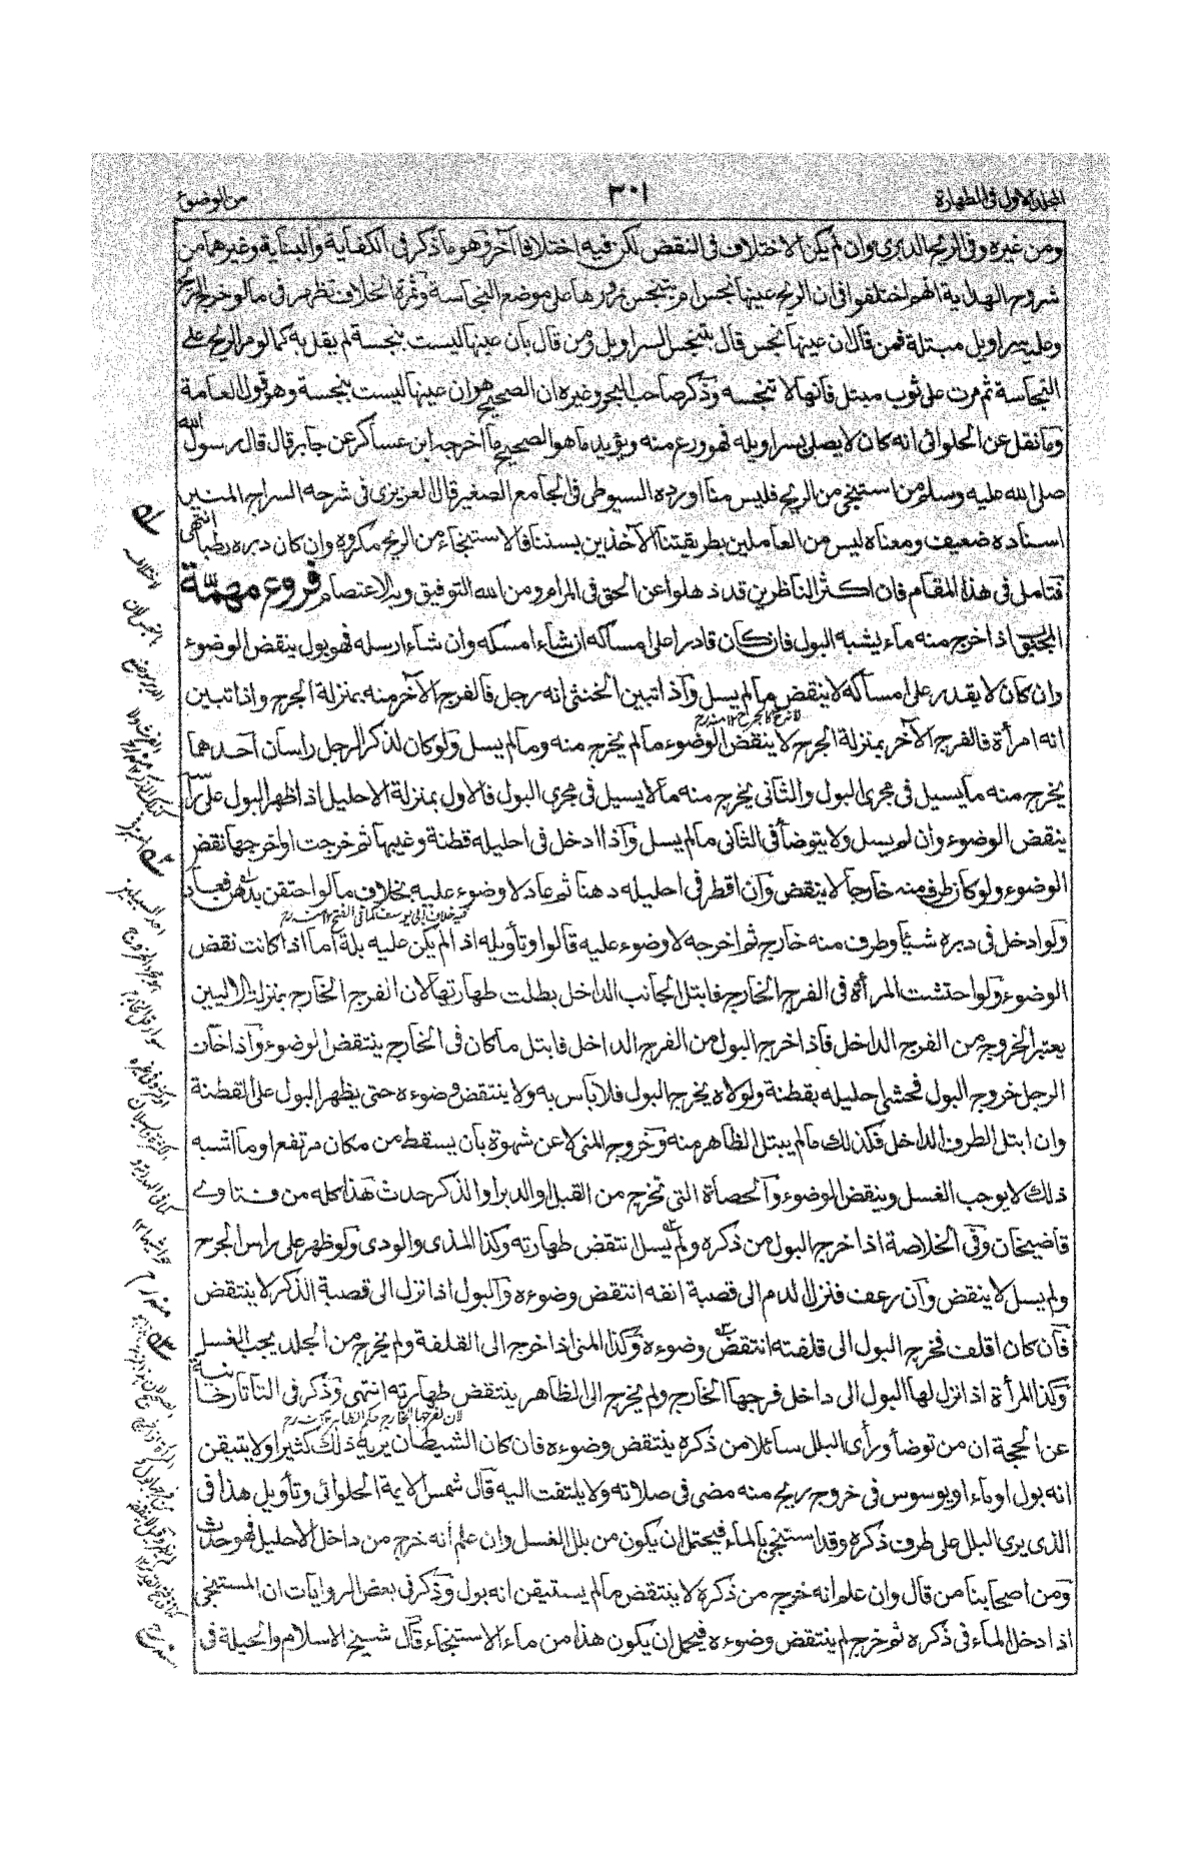 المجلد الاول فى الطهارة
٣٠١
من الوضوء
ومن غيره وفى الريح الدبرى وان لم يكن الاختلاف فى النقض لكن فيه اختلافا آخر وهو ما ذكر فى الكفاية والبناية وغيرهما من
شروح الهداية انهم اختلفوا فى ان الريح عينها نجس ام يتنجس بمرورها على موضع النجاسة وثمرة الخلاف تظهر فى ما لو خرج الريح
وعليه سراويل مبتلة فمن قال ان عينها نجس قال بتنجس السراويل ومن قال بان عينها ليست بنجسة لم يقل به كما لو مر الريح على
النجاسة ثم مرت على ثوب مبتل فانها لا تنجسه وذكر صاحب البحر وغيره ان الصحيح هو ان عينها ليست بنجسة وهو قول العامة
وما نقل عن الحلوائى انه كان لا يصلى بسراويله فهو ورع منه ويؤيد ما هو الصحيح ما اخرجه ابن عساكر عن جابر قال قال رسول الله
صلى الله عليه وسلم من استنجى من الريح فليس منا اورده السيوطى فى الجامع الصغير قال العزيزى فى شرحه السراج المنير
اسناده ضعيف ومعناه ليس من العاملين بطريقتنا الآخذين بسنتنا فالاستنجاء من الريح مكروه وان كان دبره رطبا انتهى
فتامل فى هذا المقام فان اكثر الناظرين قد ذهلوا عن الحق فى المرام ومن الله التوفيق وبه الاعتصام فروع مهمة
اذا خرج منه ماء يشبه البول فان كان قادرا على امساكه ان شاء امسكه وان شاء ارسله فهو بول ينقض الوضوء
وان كان لا يقدر على امساكه لا ينقض ما لم يسل واذا تبين الخنثى انه رجل فالفرج الآخر منه بمنزلة الجرح واذا تبين
انه امرأة فالفرج الآخر بمنزلة الجرح لا ينقض الوضوء ما لم يخرج منه وما لم يسل ولو كان لذكر الرجل راسان احدهما
يخرج منه ما يسيل فى مجرى البول والثانى يخرج منه ما لا يسيل فى مجرى البول فالاول بمنزلة الاحليل اذا ظهر البول على رأسه
ينقض الوضوء وان لم يسل ولا يتوضأ فى الثانى ما لم يسل واذا ادخل فى احليله قطنة وغيبها ثم خرجت او اخرجها نقض
الوضوء ولو كان طرف منه خارجا لا ينقض وان اقطر فى احليله دهنا ثم عاد لا وضوء عليه بخلاف ما لو احتقن بدهن فعاد
فيه خلاف ابى يوسف كما فى الفتح ١٢ منه رح
ولو ادخل فى دبره شيئا وطرف منه خارج ثم اخرجه لا وضوء عليه قالوا وتأويله اذا لم يكن عليه بلة اما اذا كانت نقض
الوضوء ولو احتشت المرأة فى الفرج الخارج فابتل الجانب الداخل بطلت طهارتها لان الفرج الخارج بمنزلة الاليين
يعتبر الخروج من الفرج الداخل فاذا خرج البول من الفرج الداخل فابتل ما كان فى الخارج ينتقض الوضوء واذا خاف
الرجل خروج البول فحشى احليله بقطنة ولولاه يخرج البول فلا بأس به ولا ينتقض وضوءه حتى يظهر البول على القطنة
وان ابتل الطرف الداخل فكذلك ما لم يبتل الظاهر منه وخروج المنى لا عن شهوة بأن يسقط من مكان مرتفع او ما اشبه
ذلك لا يوجب الغسل وينقض الوضوء والحصاة التى تخرج من القبل والدبر او الذكر حدث هذا كله من فتاوے
قاضيخان وفى الخلاصة اذا خرج البول من ذكره ولم يسل انتقض طهارته وكذا المذى والودى ولو ظهر على راس الجرح
ولم يسل لا ينقض وان رعف فنزل الدم الى قصبة انفه انتقض وضوءه والبول اذا نزل الى قصبة الذكر لا ينتقض
فان كان اقلف فخرج البول الى قلفته انتقض وضوءه وكذا المنى اذا خرج الى القلفة ولم يخرج من الجلد يجب الغسل
وكذا المرأة اذا نزل لها البول الى داخل فرجها الخارج ولم يخرج الى الظاهر ينتقض طهارته انتهى وذكر فى التاتارخانية
عن الحجة ان من توضأ ورأى البلل سائلا من ذكره ينتقض وضوءه فان كان الشيطان يريه ذلك كثيرا ولا يتيقن
انه بول او ماء او يوسوس فى خروج ريح منه مضى فى صلاته ولا يلتفت اليه قال شمس الايمة الحلوائى وتأويل هذا فى
الذى يرى البلل على طرف ذكره وقد استنجى بالماء فيحتمل ان يكون من بلل الغسل وان علم انه خرج من داخل الاحليل فهو حدث
ومن اصحابنا من قال وان علم انه خرج من ذكره لا ينتقض ما لم يستيقن انه بول وذكر فى بعض الروايات ان المستنجى
اذا دخل الماء فى ذكره ثم خرج لم ينتقض وضوءه فيحمل ان يكون هذا من ماء الاستنجاء قال شيخ الاسلام والحيلة فى